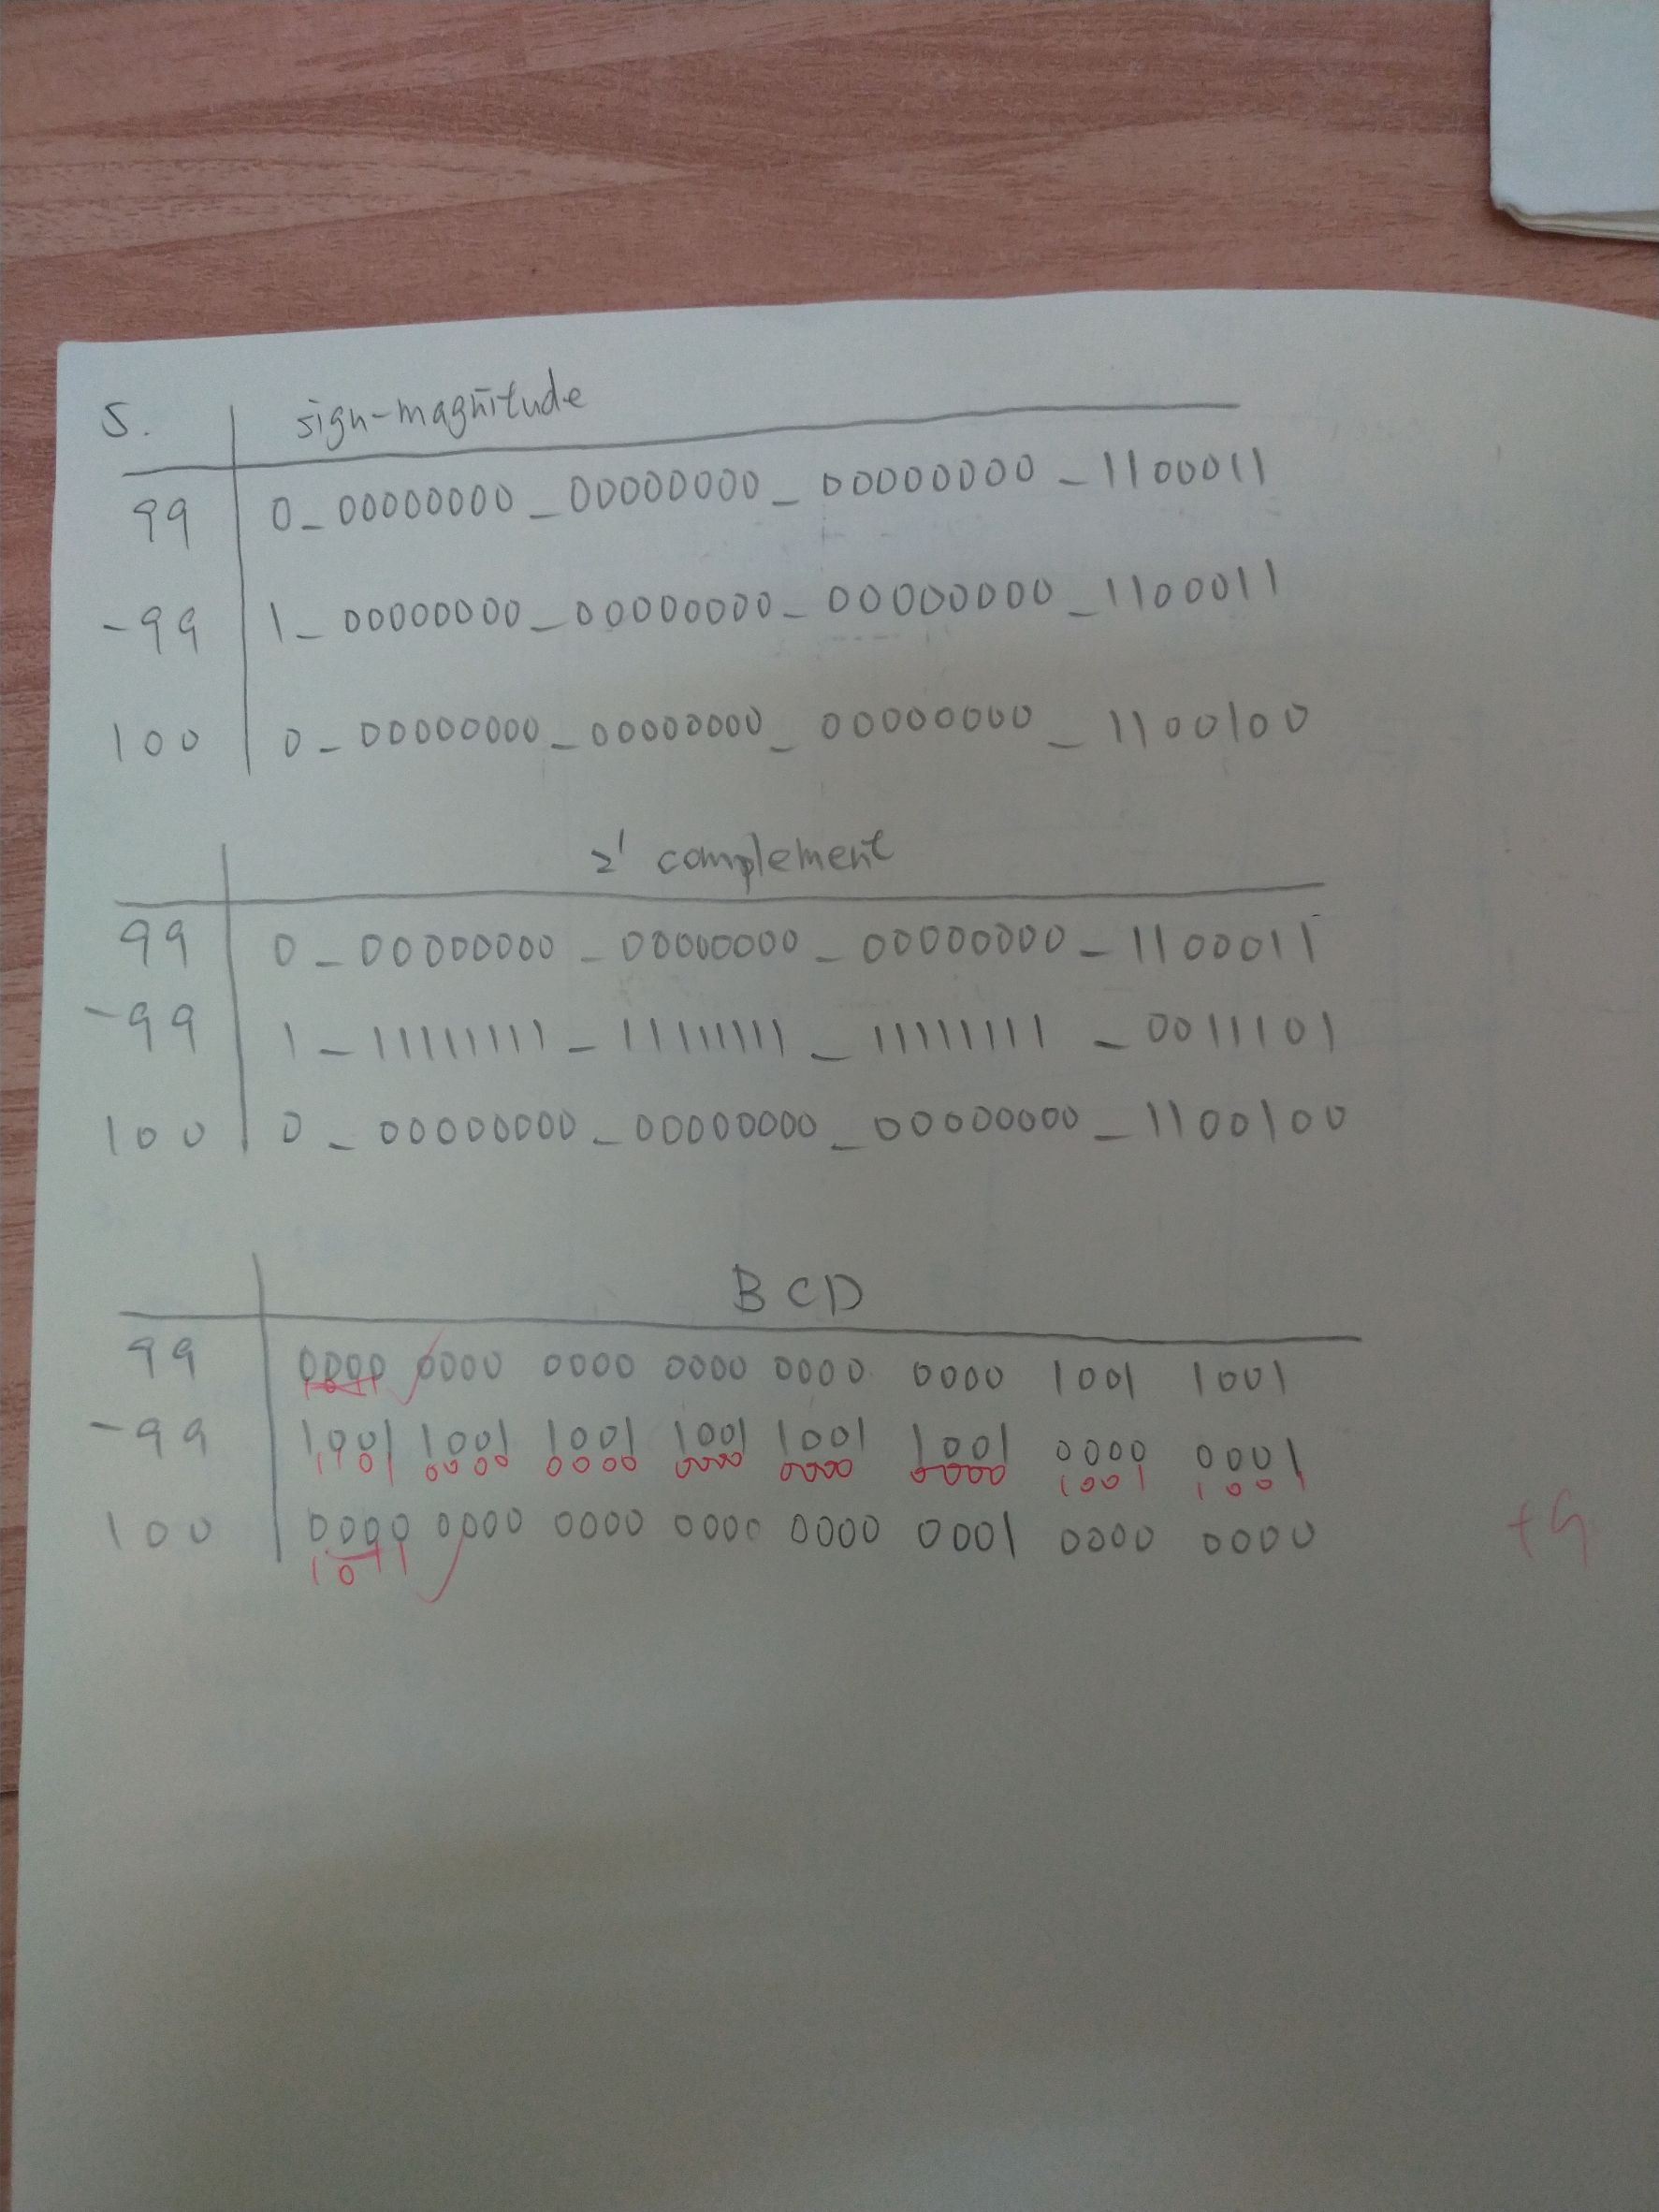 5. sign-magnitude
99 0_00000000_00000000_00000000_1100011
-99 1_00000000_00000000_00000000_1100011
100 0_00000000_00000000_00000000_1100100
2' complement
99 0_00000000_00000000_00000000_1100011
-99 1_11111111_11111111_11111111_0011101
100 0_00000000_00000000_00000000_1100100
BCD
99 0000 0000 0000 0000 0000 0000 1001 1001
-99 1001 1001 1001 1001 1001 1001 0000 0001
1101 0000 0000 0000 0000 0000 1001 1001
100 0000 0000 0000 0000 0000 0001 0000 0000
1011
+9